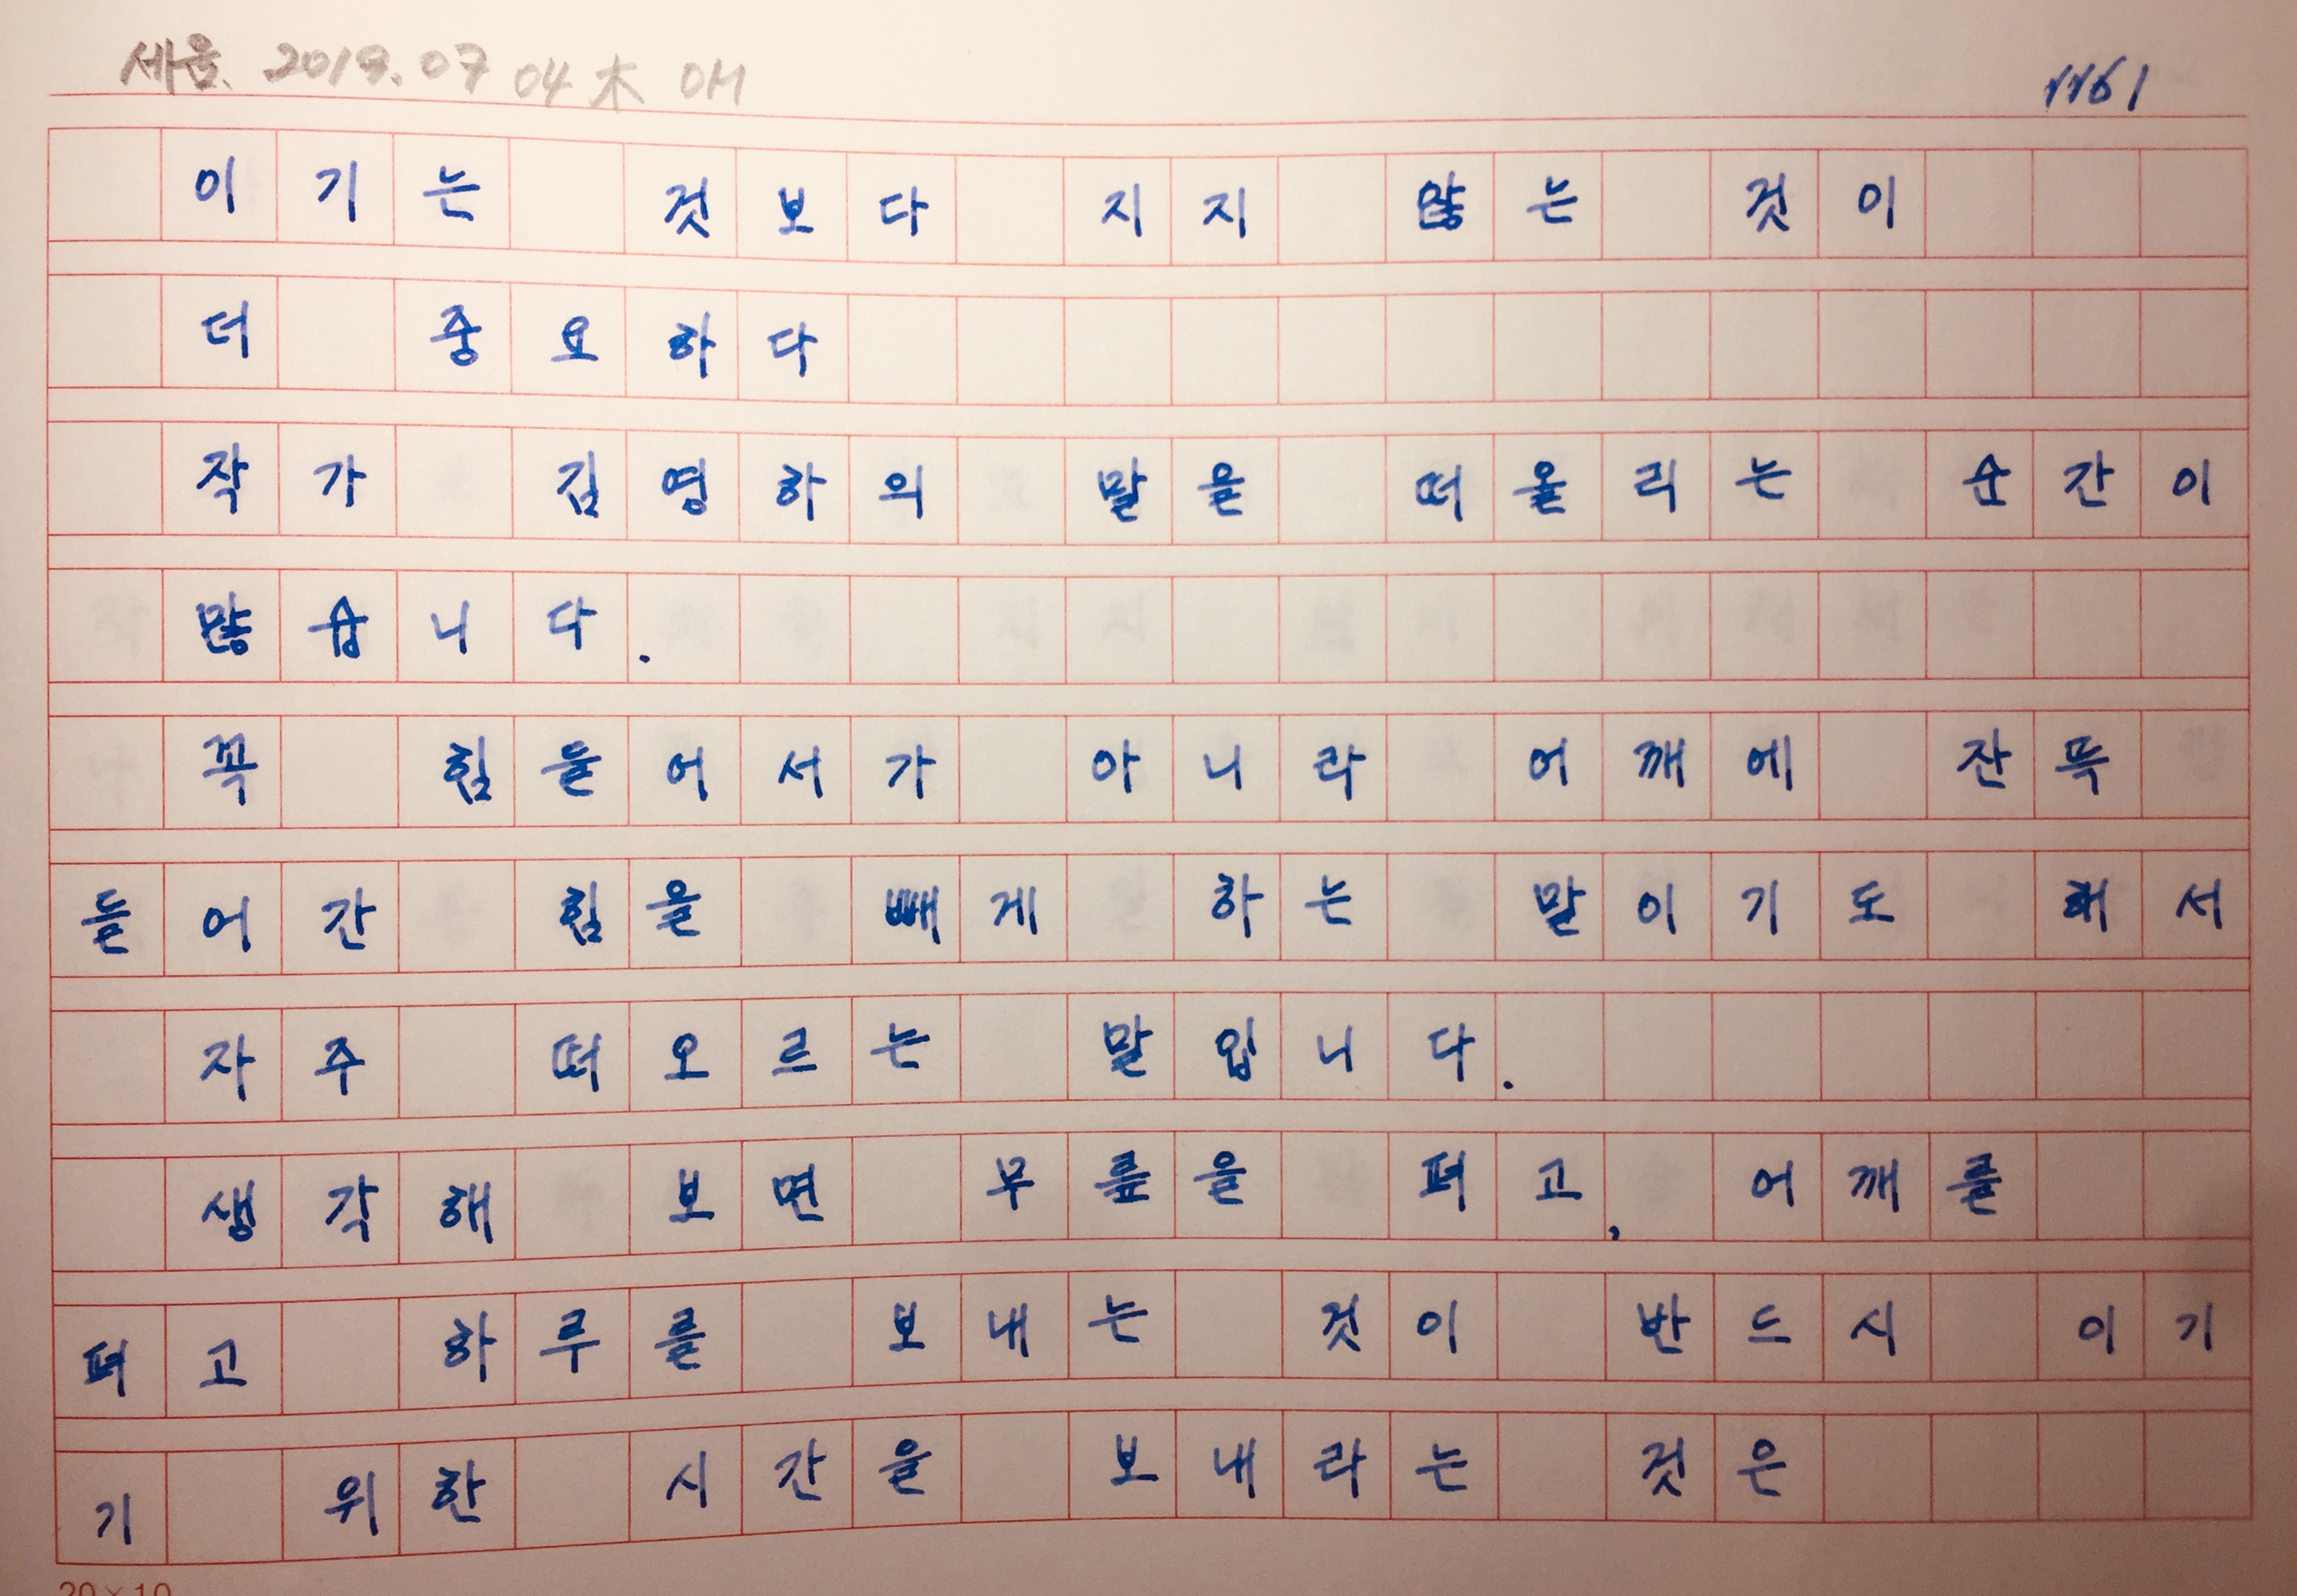 세움. 2019.07 04 木 OM
1161
이기는 것보다 지지 않는 것이
더 중요하다
작가 김영하의 말을 떠올리는 순간이
많습니다.
꼭 힘들어서가 아니라 어깨에 잔뜩
들어간 힘을 빼게 하는 말이기도 해서
자주 떠오르는 말입니다.
생각해 보면 무릎을 펴고, 어깨를
펴고 하루를 보내는 것이 반드시 이기
기 위한 시간을 보내라는 것은
20×10